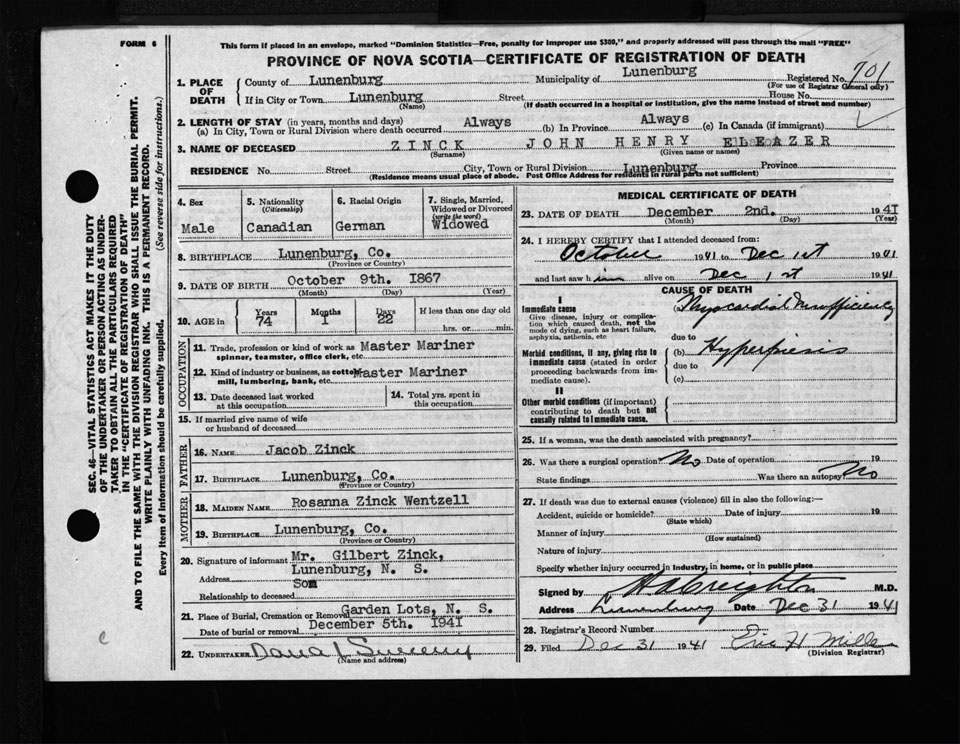 FORM 6
This form if placed in an envelope, marked "Dominion Statistics—Free, penalty for improper use $300," and properly addressed will pass through the mail "FREE"
PROVINCE OF NOVA SCOTIA—CERTIFICATE OF REGISTRATION OF DEATH
1. PLACE OF DEATH
County of Lunenburg Municipality of Lunenburg Registered No. 701
(For use of Registrar General only)
If in City or Town Lunenburg Street House No.
(Name) (If death occurred in a hospital or institution, give the name instead of street and number)
2. LENGTH OF STAY (in years, months and days)
(a) In City, Town or Rural Division where death occurred Always (b) In Province Always (c) In Canada (if immigrant)
3. NAME OF DECEASED ZINCK JOHN HENRY ELEAZER
(Surname) (Given name or names)
RESIDENCE No. Street City, Town or Rural Division Lunenburg Province
(Residence means usual place of abode. Post Office Address for residents in rural parts not sufficient)
4. Sex
Male
5. Nationality
(Citizenship)
Canadian
6. Racial Origin
German
7. Single, Married, Widowed or Divorced
(write the word)
Widowed
8. BIRTHPLACE Lunenburg Co.
(Province or Country)
9. DATE OF BIRTH October 9th. 1867
(Month) (Day) (Year)
10. AGE in
Years Months Days If less than one day old
74 1 22 hrs. or min.
OCCUPATION
11. Trade, profession or kind of work as Master Mariner
spinner, teamster, office clerk, etc.
12. Kind of industry or business, as cotton Master Mariner
mill, lumbering, bank, etc.
13. Date deceased last worked at this occupation
14. Total yrs. spent in this occupation
15. If married give name of wife or husband of deceased
FATHER
16. NAME Jacob Zinck
17. BIRTHPLACE Lunenburg, Co.
(Province or Country)
MOTHER
18. MAIDEN NAME Rosanna Zinck Wentzell
19. BIRTHPLACE Lunenburg, Co.
(Province or Country)
20. Signature of informant Mr. Gilbert Zinck,
Address Lunenburg, N. S.
Relationship to deceased Son
21. Place of Burial, Cremation or Removal Garden Lots, N. S.
Date of burial or removal December 5th. 1941
22. UNDERTAKER Dana J Sweeny
(Name and address)
MEDICAL CERTIFICATE OF DEATH
23. DATE OF DEATH December 2nd. 1941
(Month) (Day) (Year)
24. I HEREBY CERTIFY that I attended deceased from:
October 1941 to Dec 1st 1941
and last saw him alive on Dec 1st 1941
CAUSE OF DEATH
I
Immediate cause
Give disease, injury or complication which caused death, not the mode of dying, such as heart failure, asphyxia, asthenia, etc
Myocardial Insufficiency
due to
Morbid conditions, if any, giving rise to immediate cause (stated in order proceeding backwards from immediate cause).
(b) Hyperpiesis
due to
(c)
II
Other morbid conditions (if important) contributing to death but not causally related to immediate cause.
25. If a woman, was the death associated with pregnancy?
26. Was there a surgical operation? No Date of operation 19
State findings Was there an autopsy? No
27. If death was due to external causes (violence) fill in also the following:—
Accident, suicide or homicide? Date of injury 19
(State which)
Manner of injury
(How sustained)
Nature of injury
Specify whether injury occurred in industry, in home, or in public place
Signed by H A Creighton M.D.
Address Lunenburg Date Dec 31 1941
28. Registrar's Record Number
29. Filed Dec 31 1941 Eric H Miller
(Division Registrar)
SEC. 46—VITAL STATISTICS ACT MAKES IT THE DUTY
OF THE UNDERTAKER OR PERSON ACTING AS UNDER-
TAKER TO OBTAIN ALL THE PARTICULARS REQUIRED
IN THE "CERTIFICATE OF REGISTRATION OF DEATH"
AND TO FILE THE SAME WITH THE DIVISION REGISTRAR WHO SHALL ISSUE THE BURIAL PERMIT.
WRITE PLAINLY WITH UNFADING INK. THIS IS A PERMANENT RECORD.
Every item of information should be carefully supplied. (See reverse side for instructions.)
c